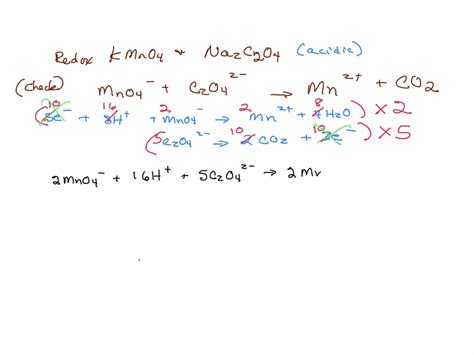 Redox KMnO4 & Na2C2O4 (acidic)
(check) MnO4⁻ + C2O4²⁻ → Mn²⁺ + CO2
(10 5e⁻ + 16 8H⁺ + 2 MnO4⁻ → 2 Mn²⁺ + 8 4H2O) × 2
(5C2O4²⁻ → 10 2 CO2 + 10 2e⁻) × 5
2MnO4⁻ + 16H⁺ + 5C2O4²⁻ → 2 Mn